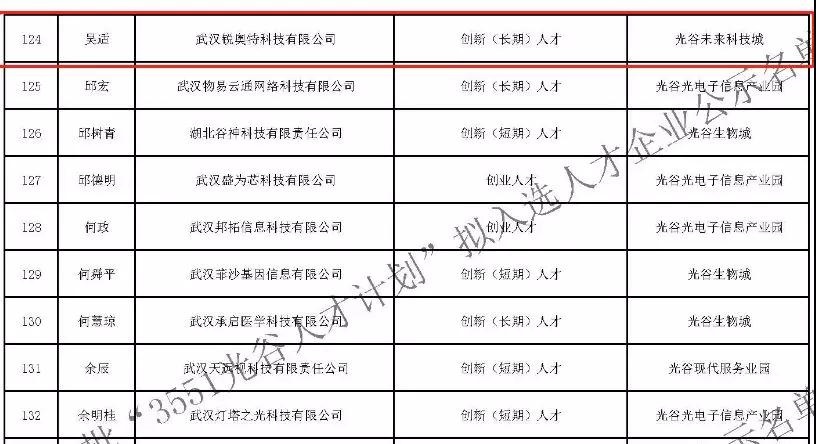 124 吴适 武汉锐奥特科技有限公司 创新（长期）人才 光谷未来科技城
125 邱宏 武汉物易云通网络科技有限公司 创新（长期）人才 光谷光电子信息产业园
126 邱树青 湖北谷神科技有限责任公司 创新（短期）人才 光谷生物城
127 邱德明 武汉盛为芯科技有限公司 创业人才 光谷光电子信息产业园
128 何政 武汉邦拓信息科技有限公司 创业人才 光谷光电子信息产业园
129 何舜平 武汉菲沙基因信息有限公司 创新（短期）人才 光谷生物城
130 何慧琼 武汉承启医学科技有限公司 创新（长期）人才 光谷生物城
131 余辰 武汉天远视科技有限责任公司 创新（短期）人才 光谷现代服务业园
132 余明桂 武汉灯塔之光科技有限公司 创新（短期）人才 光谷光电子信息产业园
批“3551光谷人才计划”拟入选人才企业公示名单